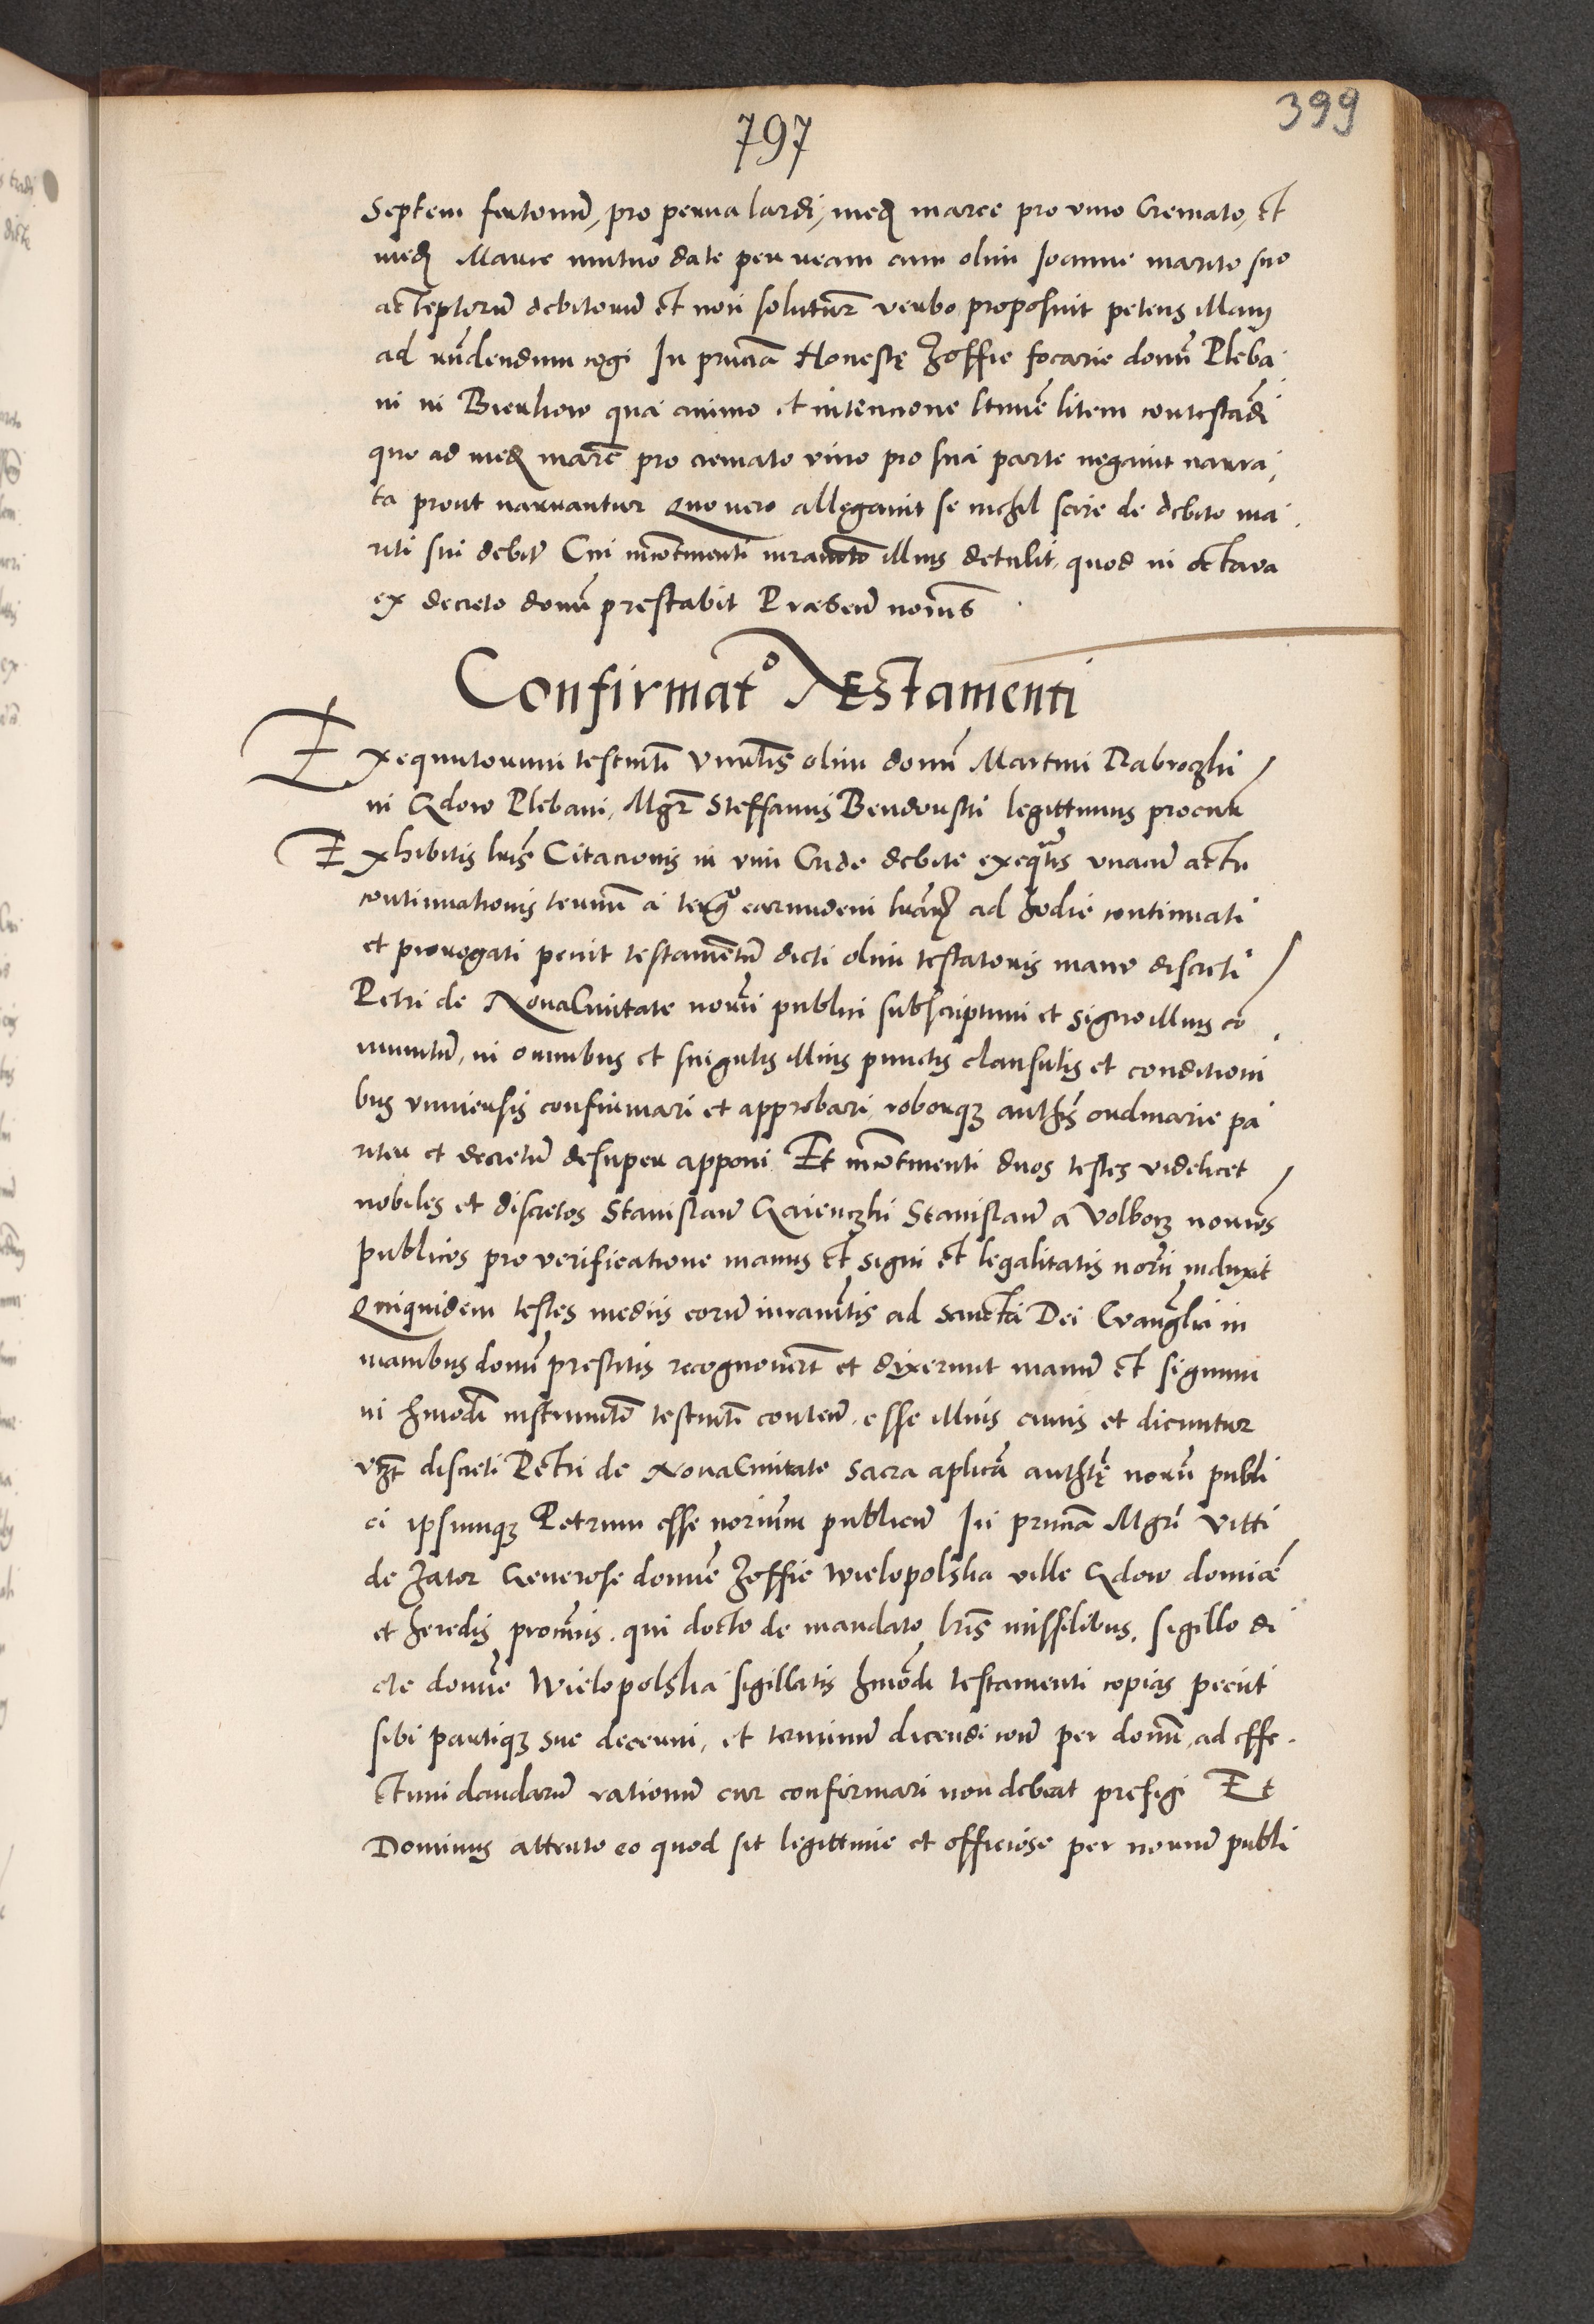 797
399
Septem fertonũ, pro perna lardi, međ marce pro vino Cremato, et
međ Marce mutuo date per ream cum olim Joanne marito suo
acceptorũ debitorũ et non solutorꝝ verbo proposuit petens illam
ad rñdendum cogi In pñtia Honestę Zoffie focarie domi Pleba
ni in Bierkow que animo et intencione litem contestãdi
quo ad međ marce pro cremato vino pro sua parte negavit narra,
ta prout narrantur Quo vero allęgavit se nichil scire de debito ma
riti sui Cui incontinenti iuramtõ illius detulit, quod in octava
ex decreto domi prestabit Pñtibus
Confirmat° Testamenti
Exequutorum testmti olim domi Martini Dabroczki
in Gdow Plebani, Mgr Steffanus legittimus procur
Exhibitis lris Citacionis in vim Cride debite exeqtis unacũ actu
continuationis termi a termĩo earumdem lrarꝝ ad hodie continuati
et prorogati petiit testamẽtũ dicti olim testatoris manu discreti
Petri de Nova Civitate notrii publici subscriptum et signo illius co
munitũ, in omnibus et singulis illius punctis clausulis et conditioni
bus universis confirmari et approbari, roborqꝫ authtis ordinarie pa
riter et decretũ desuper apponi Et incontinenti duos testes videlicet
nobiles et discretos Stanislaũ Gaienczki Stanislaũ a Volborz notrios
publicos pro verificatione manus et signi et legalitatis notrii induxit
Quiquidem testes mediis eorũ iuramtis ad sancta Dei Evanglia in
manibus domi prestitis recognoverũt et dixerunt manũ et signum
in hmodi instrumto testmti contenũ, esse illius cuius et dicuntur
vꝫt discreti Petri de Nova Civitate sacra aplica authte notrii publi
ci ipsumqꝫ Petrum esse notrium publicũ In pñtia Mgri Vitti
de Zator Generose domine Zoffie Wielopolska ville Gdow domine
et heredis procuris, qui docto de mandato lris missilibus, sigillo di
cte domine Wielopolska sigillatis hmodi testamenti copias petiit
sibi partiqꝫ sue decerni, et terminũ dicendi contra per domũ, ad effe
ctum dandarũ rationũ cur confirmari non debeat prefigi Et
Dominus attento eo quod sit legittime et officiose per notriũ publi